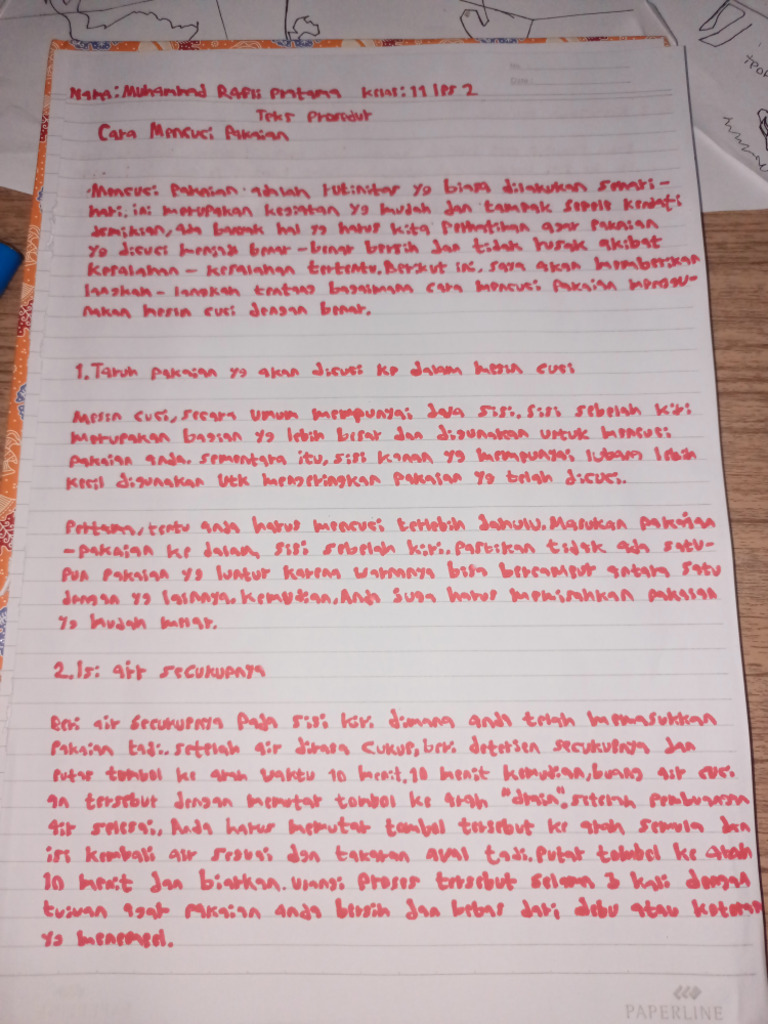 No.
Date:
Nama: Muhammad Rafis Pratama Kelas: 11 IPS 2
Teks Prosedur
Cara Mencuci Pakaian
Mencuci Pakaian adalah rutinitas yg biasa dilakukan sehari-
hari. ini merupakan kegiatan yg mudah dan tampak sepele kendati
demikian, ada banyak hal yg harus kita perhatikan agar pakaian
yg dicuci menjadi benar-benar bersih dan tidak rusak akibat
kesalahan-kesalahan tertentu. Berikut ini, saya akan memberikan
langkah-langkah tentang bagaimana cara mencuci pakaian menggu-
nakan mesin cuci dengan benar.
1. Taruh pakaian yg akan dicuci ke dalam mesin cuci
Mesin cuci, secara umum mempunyai dua sisi. sisi sebelah kiri
merupakan bagian yg lebih besar dan digunakan untuk mencuci
pakaian anda. sementara itu, sisi kanan yg mempunyai lubang lebih
kecil digunakan utk mengeringkan pakaian yg telah dicuci.
Pertama, tentu anda harus mencuci terlebih dahulu. Masukan pakaian
-pakaian ke dalam sisi sebelah kiri. pastikan tidak ada satu-
pun pakaian yg luntur karena warnanya bisa bercampur antara satu
dengan yg lainnya. kemudian, Anda juga harus memisahkan pakaian
yg mudah
2. Isi air secukupnya
Beri air secukupnya pada sisi kiri dimana anda telah memasukkan
pakaian tadi. setelah air dirasa cukup, beri deterjen secukupnya dan
putar tombol ke arah waktu 10 menit. 10 menit kemudian, buang air cuci
an tersebut dengan memutar tombol ke arah "drain". setelah pembuangan
air selesai, Anda harus memutar tombol tersebut ke arah semula dan
isi kembali air sesuai dgn takaran awal tadi. Putar tombol ke arah
10 menit dan biarkan. ulangi proses tersebut selama 3 kali dengan
tujuan agar pakaian anda bersih dan bebas dari debu atau kotoran
yg menempel.
PAPERLINE